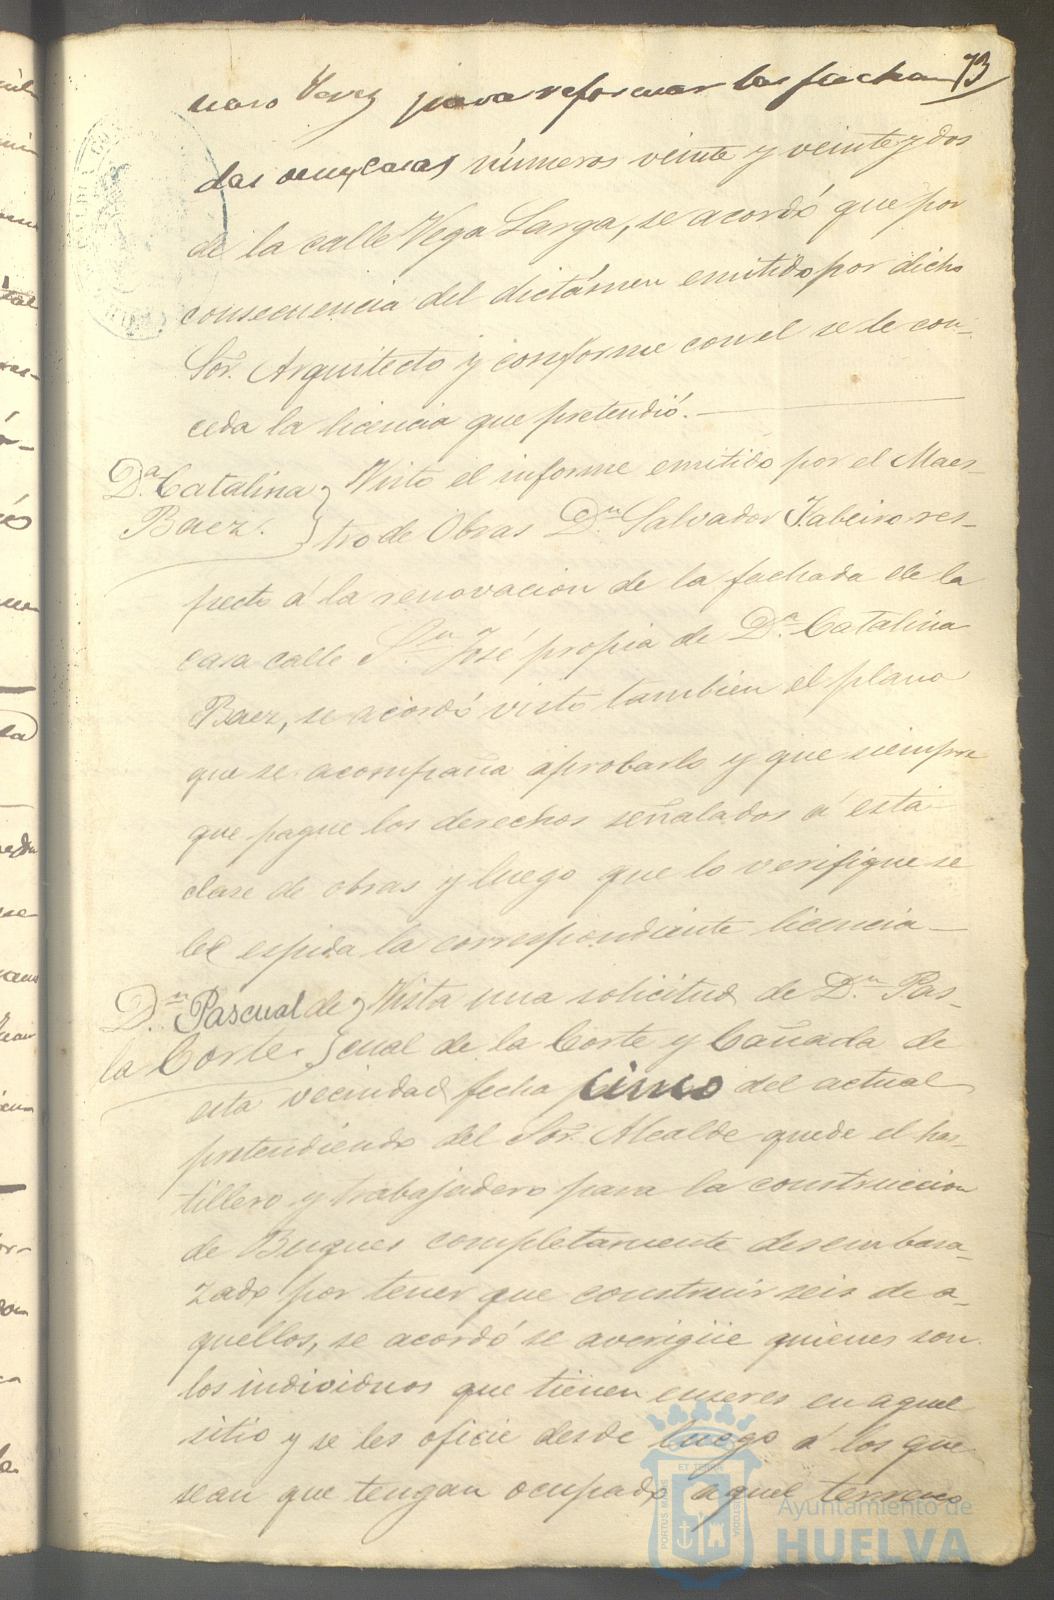 73
naro Perez para reformar las facha
das de sus casas números veinte y veinte y dos
de la calle Vega Larga, se acordó que por
consecuencia del dictámen emitido por dicho
Sor. Arquitecto y conforme con el se le con-
ceda la licencia que pretendió.
Da. Catalina
Baez.
Visto el informe emitido por el Maes-
tro de Obras Dn. Salvador res-
pecto á la renovacion de la fachada de la
casa calle Sn. José propia de Da. Catalina
Baez, se acordó visto tambien el plano
que se acompaña aprobarlo y que siempre
que pague los derechos señalados á esta
clase de obras y luego que lo verifique se
le espida la correspondiente licencia
Dn. Pascual de
la Corte.
Vista una solicitud de Dn. Pas-
cual de la Corte y Cañada de
esta vecindad fecha cinco del actual
pretendiendo del Sor. Alcalde quede el has-
tillero y trabajadero para la construccion
de Buques completamente desembara-
zado por tener que construir seis de a-
quellos, se acordó se averigüe quienes son
los individuos que tienen enseres en aquel
sitio y se les oficie desde luego á los que
sean que tengan ocupado aquel terreno
Ayuntamiento de
HUELVA